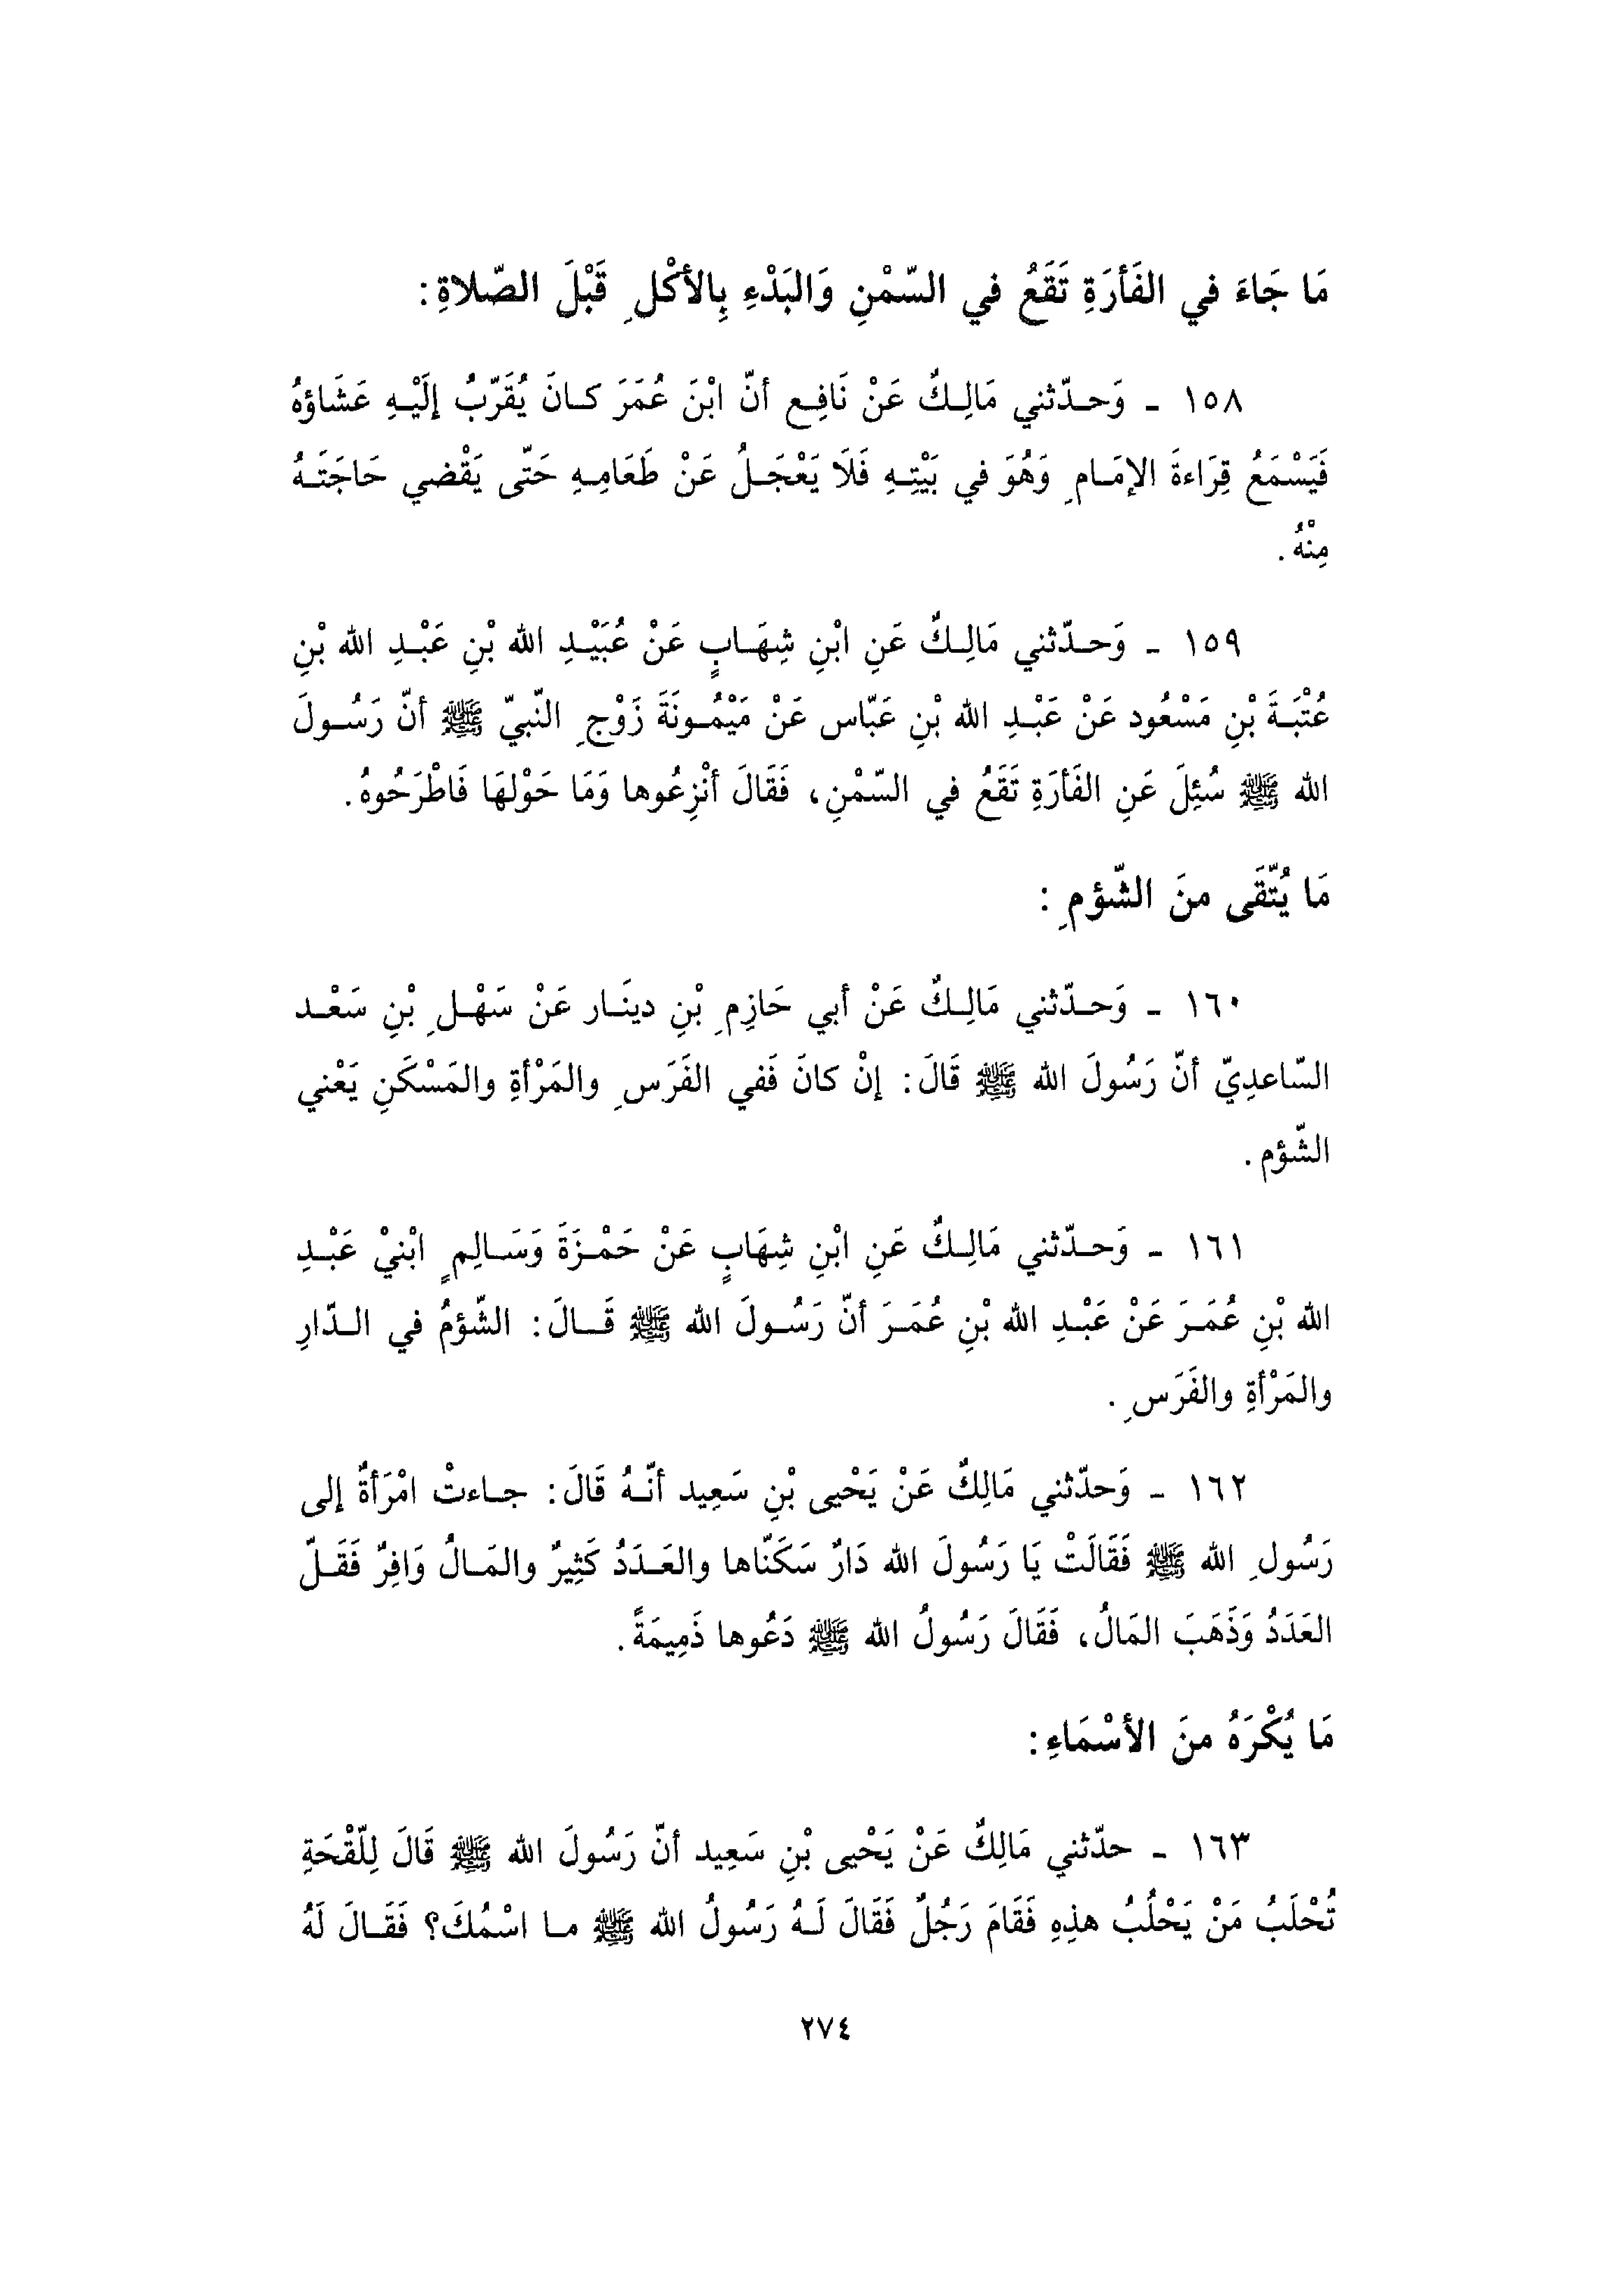 مَا جَاءَ في الفَأرَةِ تَقَعُ في السّمْنِ وَالبَدْءِ بِالأكْلِ قَبْلَ الصّلاةِ:
١٥٨ - وَحدّثني مَالِكٌ عَنْ نَافِع أنّ ابْنَ عُمَرَ كانَ يُقَرّبُ إلَيْهِ عَشَاؤهُ
فَيَسْمَعُ قِرَاءةَ الإمَامِ وَهُوَ في بَيْتِهِ فَلَا يَعْجَلُ عَنْ طَعَامِهِ حَتّى يَقْضي حَاجَتَهُ
مِنْهُ.
١٥٩ - وَحدّثني مَالِكٌ عَنِ ابْنِ شِهَابٍ عَنْ عُبَيْدِ الله بْنِ عَبْدِ الله بْنِ
عُتْبَةَ بْنِ مَسْعُود عَنْ عَبْدِ الله بْنِ عَبّاس عَنْ مَيْمُونَةَ زَوْجِ النّبيّ ﷺ أنّ رَسُولَ
الله ﷺ سُئِلَ عَنِ الفَأرَةِ تَقَعُ في السّمْنِ، فَقَالَ أنْزِعُوها وَمَا حَوْلهَا فَاطْرَحُوهُ.
مَا يُتّقَى منَ الشّؤمِ:
١٦٠ - وَحدّثني مَالِكٌ عَنْ أبي حَازِمِ بْنِ دينَار عَنْ سَهْلِ بْنِ سَعْد
السّاعدِيّ أنّ رَسُولَ الله ﷺ قَالَ: إنْ كانَ فَفي الفَرَسِ والمَرْأةِ والمَسْكَنِ يَعْني
الشّؤم.
١٦١ - وَحدّثني مَالِكٌ عَنِ ابْنِ شِهَابٍ عَنْ حَمْزَةَ وَسَالِمٍ ابْنيْ عَبْدِ
الله بْنِ عُمَرَ عَنْ عَبْدِ الله بْنِ عُمَرَ أنّ رَسُولَ الله ﷺ قَالَ: الشّؤمُ في الدّارِ
والمَرْأةِ والفَرَسِ.
١٦٢ - وَحدّثني مَالِكٌ عَنْ يَحْيى بْنِ سَعِيد أنّهُ قَالَ: جاءتْ امْرَأةٌ إلى
رَسُولِ الله ﷺ فَقَالَتْ يَا رَسُولَ الله دَارٌ سَكَنّاها والعَدَدُ كَثِيرٌ والمَالُ وَافِرٌ فَقَلّ
العَدَدُ وَذَهَبَ المَالُ، فَقَالَ رَسُولُ الله ﷺ دَعُوها ذَمِيمَةً.
مَا يُكْرَهُ منَ الأسْمَاءِ:
١٦٣ - حدّثني مَالِكٌ عَنْ يَحْيى بْنِ سَعِيد أنّ رَسُولَ الله ﷺ قَالَ لِلّقْحَةِ
تُحْلَبُ مَنْ يَحْلُبُ هذِهِ فَقَامَ رَجُلٌ فَقَالَ لَهُ رَسُولُ الله ﷺ ما اسْمُكَ؟ فَقَالَ لَهُ
٢٧٤